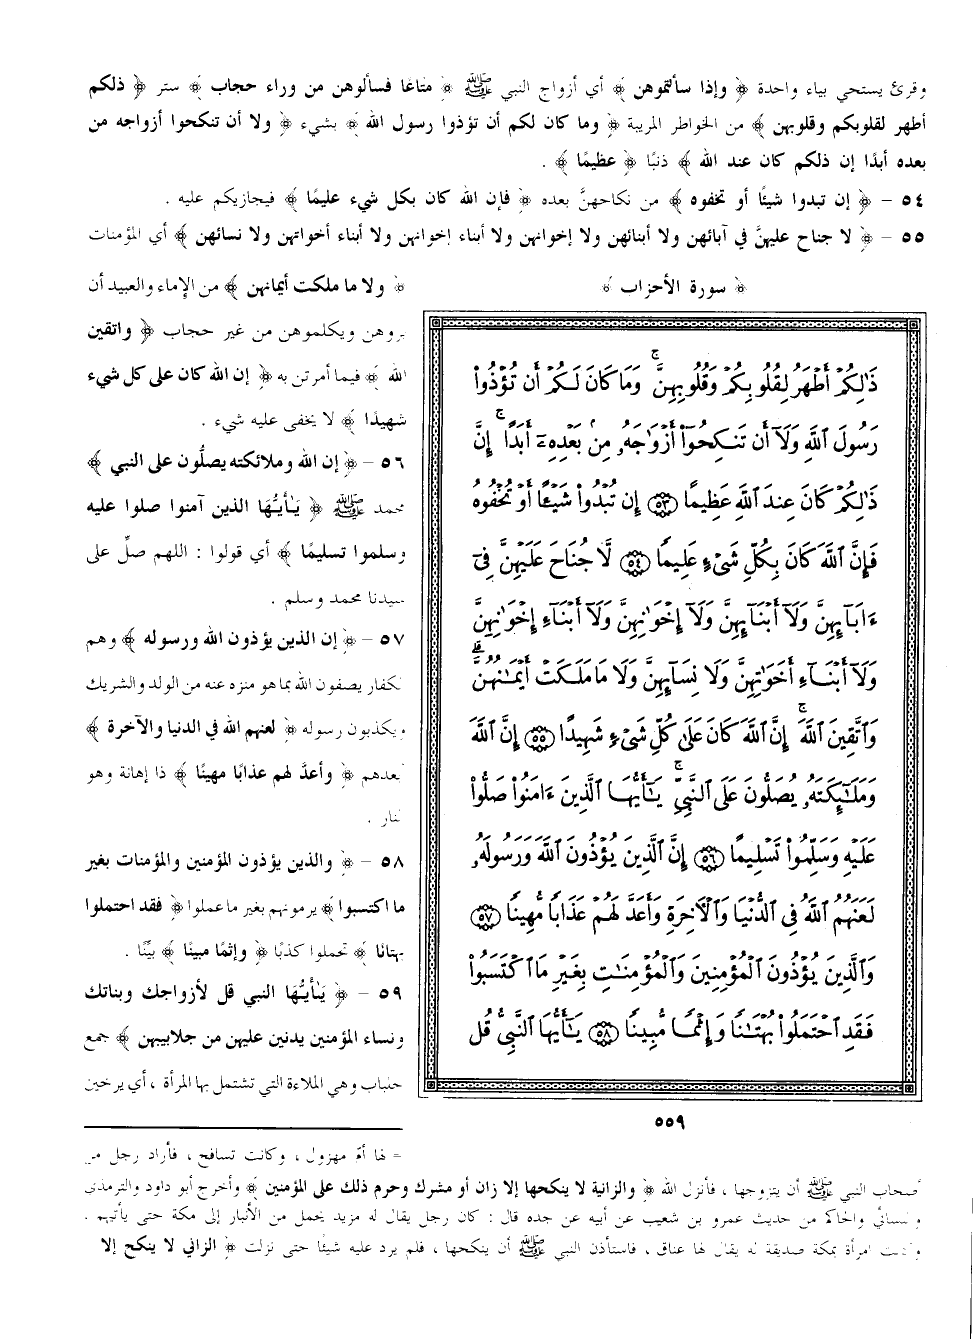 وقرئ يستحي بياء واحدة ﴿ وإذا سألتموهن ﴾ أي أزواج النبي ﷺ ﴿ متاعًا فسألوهن من وراء حجاب ﴾ ستر ﴿ ذلكم
أطهر لقلوبكم وقلوبهن ﴾ من الخواطر المريبة ﴿ وما كان لكم أن تؤذوا رسول الله ﴾ بشيء ﴿ ولا أن تنكحوا أزواجه من
بعده أبدًا إن ذلكم كان عند الله ﴾ ذنبًا ﴿ عظيمًا ﴾ .
٥٤ – ﴿ إن تبدوا شيئًا أو تخفوه ﴾ من نكاحهنَّ بعده ﴿ فإن الله كان بكل شيء عليمًا ﴾ فيجازيكم عليه .
٥٥ – ﴿ لا جناح عليهنَّ في آبائهن ولا أبنائهن ولا إخوانهن ولا أبناء إخوانهن ولا أبناء أخواتهن ولا نسائهن ﴾ أي المؤمنات
﴿ سورة الأحزاب ﴾
ذَٰلِكُمْ أَطْهَرُ لِقُلُوبِكُمْ وَقُلُوبِهِنَّ ۚ وَمَا كَانَ لَكُمْ أَن تُؤْذُوا۟
رَسُولَ ٱللَّهِ وَلَآ أَن تَنكِحُوٓا۟ أَزْوَٰجَهُۥ مِنۢ بَعْدِهِۦٓ أَبَدًا ۚ إِنَّ
ذَٰلِكُمْ كَانَ عِندَ ٱللَّهِ عَظِيمًا ﴿٥٣﴾ إِن تُبْدُوا۟ شَيْـًٔا أَوْ تُخْفُوهُ
فَإِنَّ ٱللَّهَ كَانَ بِكُلِّ شَىْءٍ عَلِيمًا ﴿٥٤﴾ لَّا جُنَاحَ عَلَيْهِنَّ فِىٓ
ءَابَآئِهِنَّ وَلَآ أَبْنَآئِهِنَّ وَلَآ إِخْوَٰنِهِنَّ وَلَآ أَبْنَآءِ إِخْوَٰنِهِنَّ
وَلَآ أَبْنَآءِ أَخَوَٰتِهِنَّ وَلَا نِسَآئِهِنَّ وَلَا مَا مَلَكَتْ أَيْمَٰنُهُنَّ ۗ
وَٱتَّقِينَ ٱللَّهَ ۚ إِنَّ ٱللَّهَ كَانَ عَلَىٰ كُلِّ شَىْءٍ شَهِيدًا ﴿٥٥﴾ إِنَّ ٱللَّهَ
وَمَلَٰٓئِكَتَهُۥ يُصَلُّونَ عَلَى ٱلنَّبِىِّ ۚ يَٰٓأَيُّهَا ٱلَّذِينَ ءَامَنُوا۟ صَلُّوا۟
عَلَيْهِ وَسَلِّمُوا۟ تَسْلِيمًا ﴿٥٦﴾ إِنَّ ٱلَّذِينَ يُؤْذُونَ ٱللَّهَ وَرَسُولَهُۥ
لَعَنَهُمُ ٱللَّهُ فِى ٱلدُّنْيَا وَٱلْءَاخِرَةِ وَأَعَدَّ لَهُمْ عَذَابًا مُّهِينًا ﴿٥٧﴾
وَٱلَّذِينَ يُؤْذُونَ ٱلْمُؤْمِنِينَ وَٱلْمُؤْمِنَٰتِ بِغَيْرِ مَا ٱكْتَسَبُوا۟
فَقَدِ ٱحْتَمَلُوا۟ بُهْتَٰنًا وَإِثْمًا مُّبِينًا ﴿٥٨﴾ يَٰٓأَيُّهَا ٱلنَّبِىُّ قُل
٥٥٩
﴿ ولا ما ملكت أيمانهن ﴾ من الإماء والعبيد أن
يروهن ويكلموهن من غير حجاب ﴿ واتقين
الله ﴾ فيما أمرتن به ﴿ إن الله كان على كل شيء
شهيدًا ﴾ لا يخفى عليه شيء .
٥٦ – ﴿ إن الله وملائكته يصلُّون على النبي ﴾
محمد ﷺ ﴿ يٰأيُّهَا الذين آمنوا صلوا عليه
وسلموا تسليمًا ﴾ أي قولوا : اللهم صلِّ على
سيدنا محمد وسلم .
٥٧ – ﴿ إن الذين يؤذون الله ورسوله ﴾ وهم
الكفار يصفون الله بما هو منزه عنه من الولد والشريك
ويكذبون رسوله ﴿ لعنهم الله في الدنيا والآخرة ﴾
أبعدهم ﴿ وأعدَّ لهم عذابًا مهينًا ﴾ ذا إهانة وهو
النار .
٥٨ – ﴿ والذين يؤذون المؤمنين والمؤمنات بغير
ما اكتسبوا ﴾ يرمونهم بغير ما عملوا ﴿ فقد احتملوا
بهتانًا ﴾ تحملوا كذبًا ﴿ وإثمًا مبينًا ﴾ بيِّنًا .
٥٩ – ﴿ يٰأيُّهَا النبي قل لأزواجك وبناتك
ونساء المؤمنين يدنين عليهن من جلابيبهن ﴾ جمع
جلباب وهي الملاءة التي تشتمل بها المرأة ، أي يرخين
= لها أم مهزول ، وكانت تسافح ، فأراد رجل من
أصحاب النبي ﷺ أن يتزوجها ، فأنزل الله ﴿ والزانية لا ينكحها إلا زان أو مشرك وحرم ذلك على المؤمنين ﴾ وأخرج أبو داود والترمذي
والنسائي والحاكم من حديث عمرو بن شعيب عن أبيه عن جده قال : كان رجل يقال له مزيد يحمل من الأنبار إلى مكة حتى يأتيهم .
وكانت امرأة بمكة صديقة له يقال لها عناق ، فاستأذن النبي ﷺ أن ينكحها ، فلم يرد عليه شيئًا حتى نزلت ﴿ الزاني لا ينكح إلا